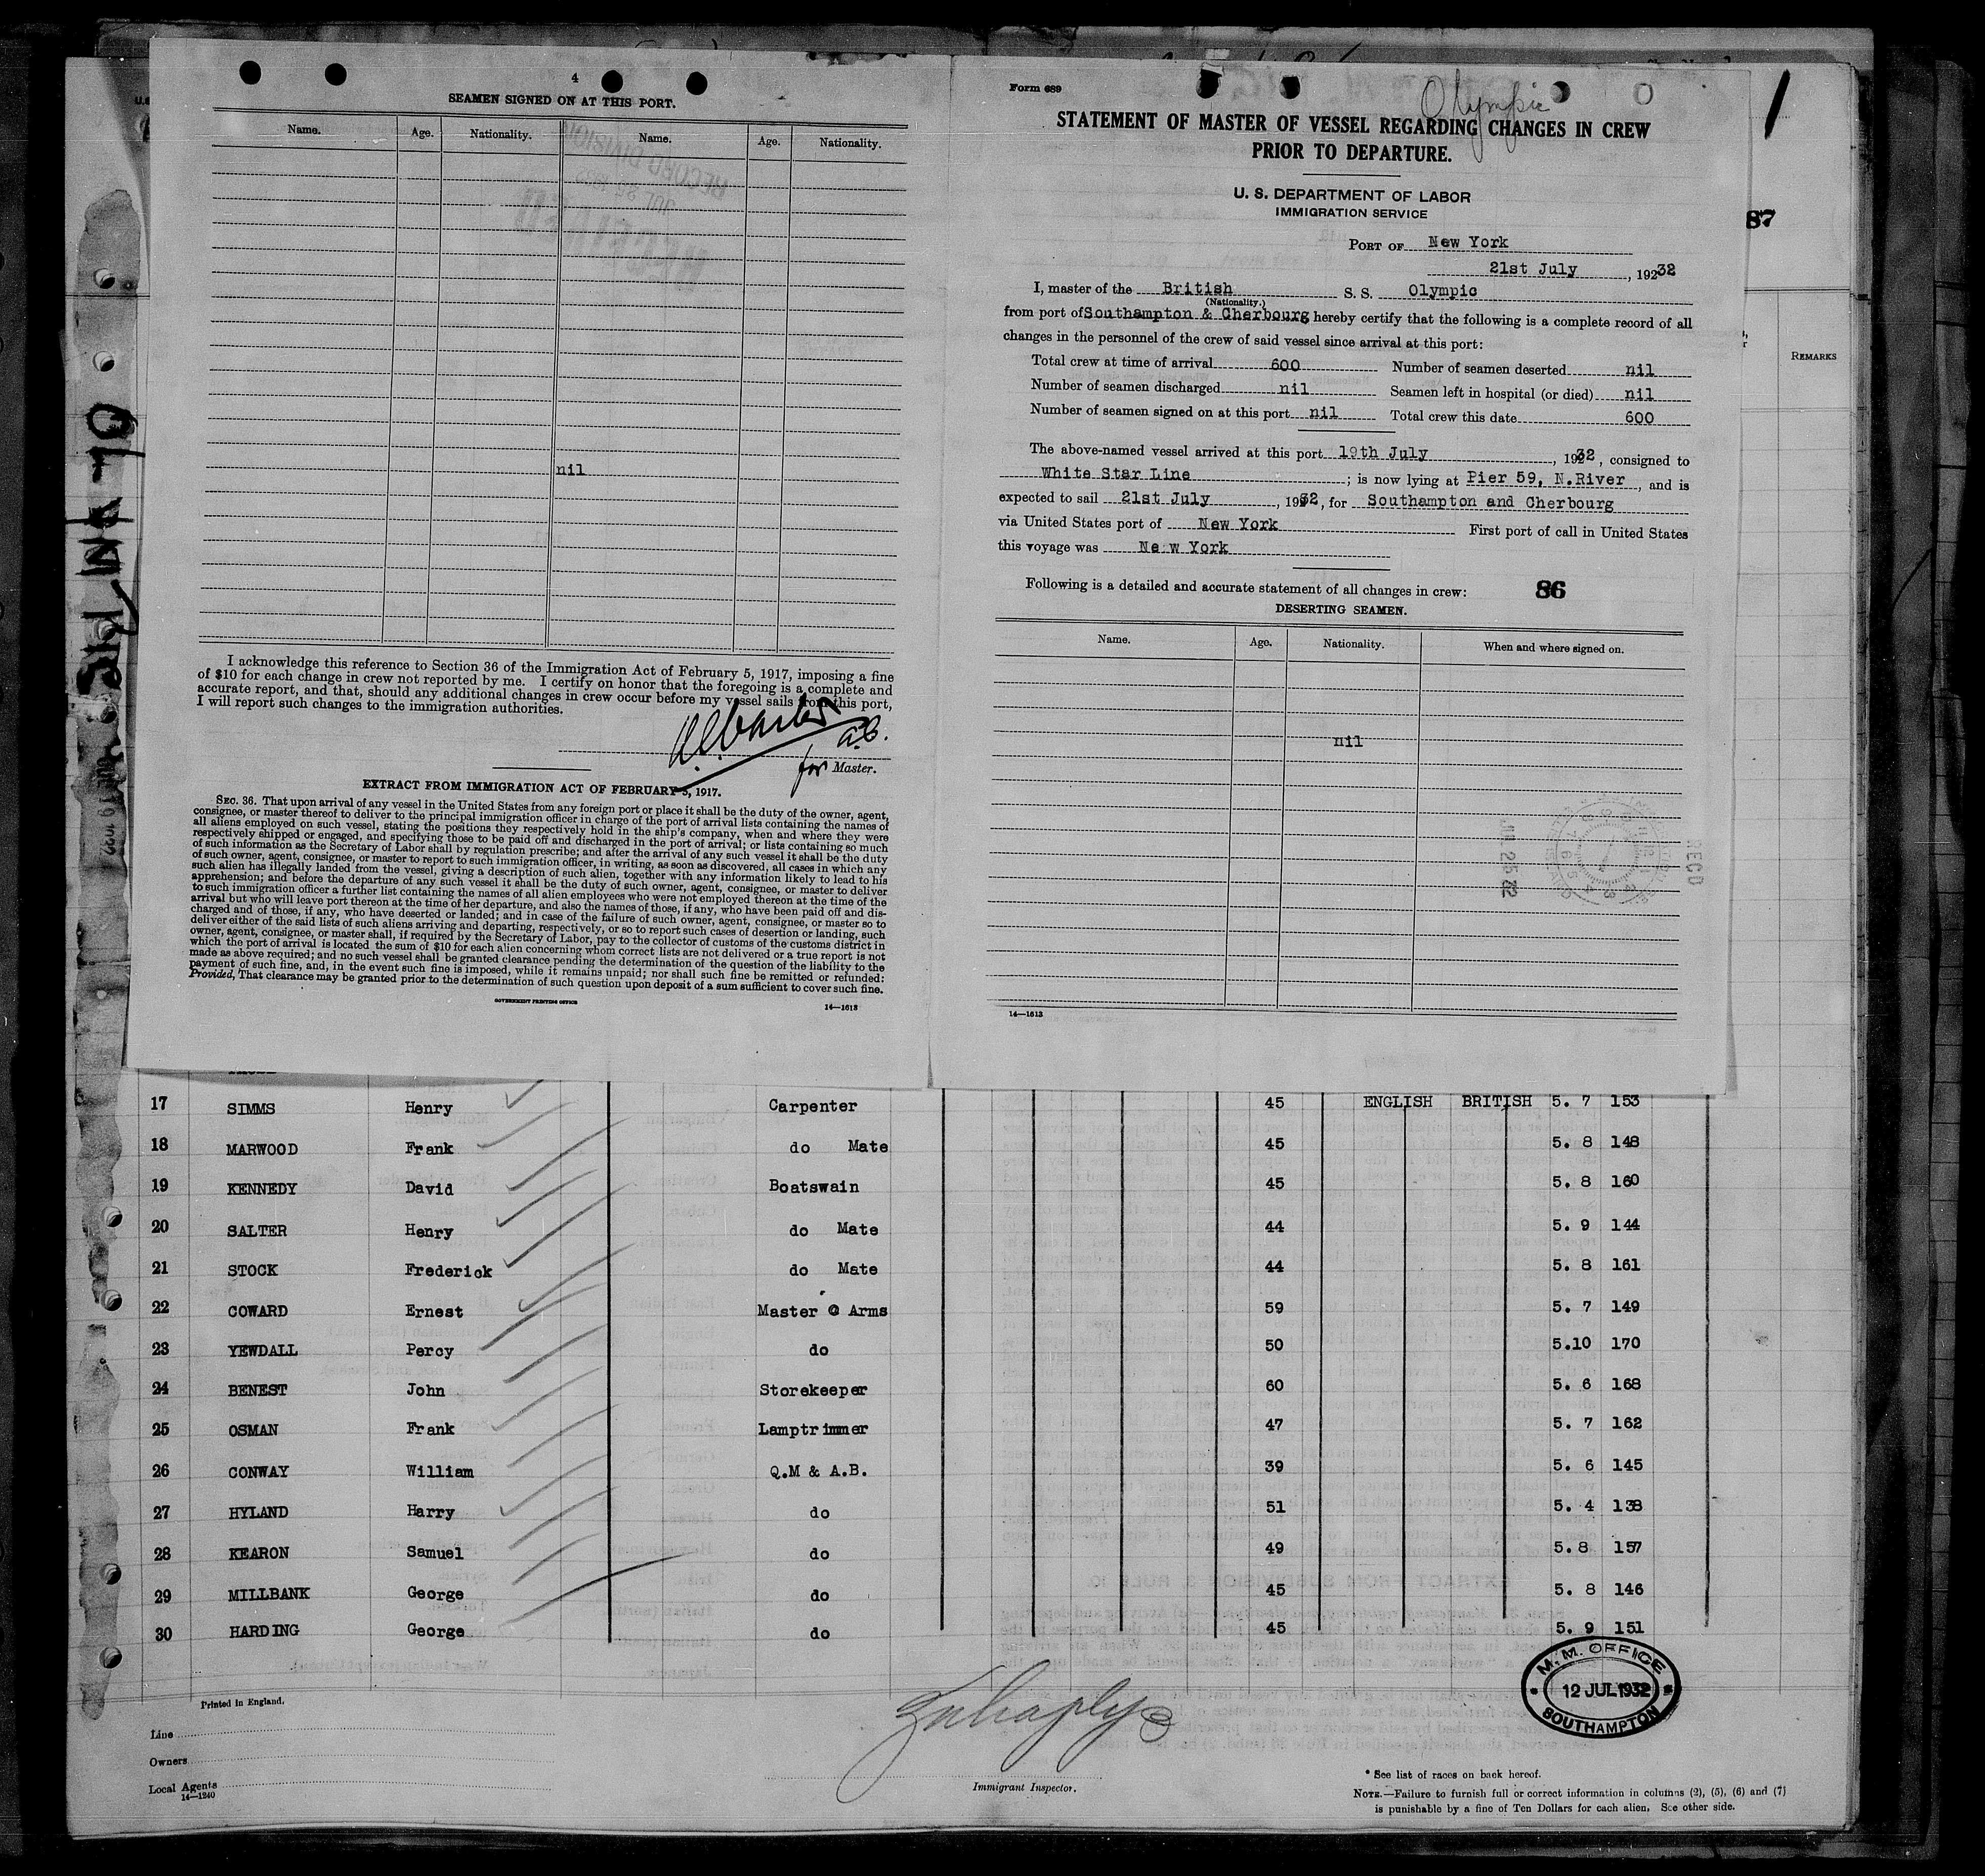 4
SEAMEN SIGNED ON AT THIS PORT.
Name. Age. Nationality. Name. Age. Nationality.
RECORD DIVISION
RECEIVED
nil
I acknowledge this reference to Section 36 of the Immigration Act of February 5, 1917, imposing a fine
of $10 for each change in crew not reported by me. I certify on honor that the foregoing is a complete and
accurate report, and that, should any additional changes in crew occur before my vessel sails from this port,
I will report such changes to the immigration authorities.
for Master.
EXTRACT FROM IMMIGRATION ACT OF FEBRUARY 5, 1917.
SEC. 36. That upon arrival of any vessel in the United States from any foreign port or place it shall be the duty of the owner, agent,
consignee, or master thereof to deliver to the principal immigration officer in charge of the port of arrival lists containing the names of
all aliens employed on such vessel, stating the positions they respectively hold in the ship's company, when and where they were
respectively shipped or engaged, and specifying those to be paid off and discharged in the port of arrival; or lists containing so much
of such information as the Secretary of Labor shall by regulation prescribe; and after the arrival of any such vessel it shall be the duty
of such owner, agent, consignee, or master to report to such immigration officer, in writing, as soon as discovered, all cases in which any
such alien has illegally landed from the vessel, giving a description of such alien, together with any information likely to lead to his
apprehension; and before the departure of any such vessel it shall be the duty of such owner, agent, consignee, or master to deliver
to such immigration officer a further list containing the names of all alien employees who were not employed thereon at the time of the
arrival but who will leave port thereon at the time of her departure, and also the names of those, if any, who have been paid off and dis-
charged and of those, if any, who have deserted or landed; and in case of the failure of such owner, agent, consignee, or master so to
deliver either of the said lists of such aliens arriving and departing, respectively, or so to report such cases of desertion or landing, such
owner, agent, consignee, or master shall, if required by the Secretary of Labor, pay to the collector of customs of the customs district in
which the port of arrival is located the sum of $10 for each alien concerning whom correct lists are not delivered or a true report is not
made as above required; and no such vessel shall be granted clearance pending the determination of the question of the liability to the
payment of such fine, and, in the event such fine is imposed, while it remains unpaid; nor shall such fine be remitted or refunded:
Provided, That clearance may be granted prior to the determination of such question upon deposit of a sum sufficient to cover such fine.
GOVERNMENT PRINTING OFFICE
14—1613
Form 689
Olympic
STATEMENT OF MASTER OF VESSEL REGARDING CHANGES IN CREW
PRIOR TO DEPARTURE.
U. S. DEPARTMENT OF LABOR
IMMIGRATION SERVICE
PORT OF New York
21st July, 19232
I, master of the British S. S. Olympic
(Nationality.)
from port of Southampton & Cherbourg hereby certify that the following is a complete record of all
changes in the personnel of the crew of said vessel since arrival at this port:
Total crew at time of arrival 600 Number of seamen deserted nil
Number of seamen discharged nil Seamen left in hospital (or died) nil
Number of seamen signed on at this port nil Total crew this date 600
The above-named vessel arrived at this port 19th July, 1932, consigned to
White Star Line; is now lying at Pier 59, N.River, and is
expected to sail 21st July, 1932, for Southampton and Cherbourg
via United States port of New York First port of call in United States
this voyage was Ne w York
Following is a detailed and accurate statement of all changes in crew: 86
DESERTING SEAMEN.
Name. Age. Nationality. When and where signed on.
nil
RECD
JUL 25 32
14—1613
87
REMARKS
17 SIMMS Henry Carpenter 45 ENGLISH BRITISH 5. 7 153
18 MARWOOD Frank do Mate 45 5. 8 148
19 KENNEDY David Boatswain 45 5. 8 160
20 SALTER Henry do Mate 44 5. 9 144
21 STOCK Frederick do Mate 44 5. 8 161
22 COWARD Ernest Master @ Arms 59 5. 7 149
23 YEWDALL Percy do 50 5.10 170
24 BENEST John Storekeeper 60 5. 6 168
25 OSMAN Frank Lamptrimmer 47 5. 7 162
26 CONWAY William Q.M & A.B. 39 5. 6 145
27 HYLAND Harry do 51 5. 4 138
28 KEARON Samuel do 49 5.8 157
29 MILLBANK George do 45 5. 8 146
30 HARDING George do 45 5. 9 151
M.M. OFFICE
12 JUL 1932
SOUTHAMPTON
Printed in England.
Line
Owners
Local Agents
14—1240
Immigrant Inspector.
* See list of races on back hereof.
NOTE.—Failure to furnish full or correct information in columns (2), (5), (6) and (7)
is punishable by a fine of Ten Dollars for each alien. See other side.